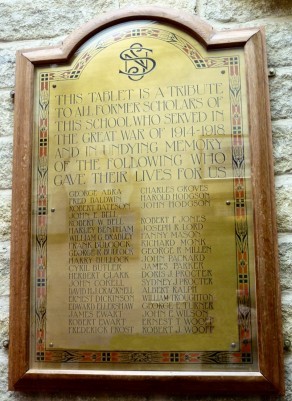 THIS TABLET IS A TRIBUTE
TO ALL FORMER SCHOLARS OF
THIS SCHOOL WHO SERVED IN
THE GREAT WAR OF 1914-1918
AND IN UNDYING MEMORY
OF THE FOLLOWING WHO
GAVE THEIR LIVES FOR US
GEORGE ABRA
FRED BALDWIN
ROBERT BATESON
JOHN E. BELL
ROBERT W. BELL
HARLEY BENTHAM
WILLIAM G. BRADLEY
FRANK BULCOCK
GEORGE R. BULLOCK
HARRY BULLOCK
CYRIL BUTLER
HERBERT CLARK
JOHN
DAVID
ERNEST DICKINSON
EDWARD
JAMES EWART
ROBERT EWART
FREDERICK FROST
CHARLES GROVES
HAROLD HODGSON
JOHN HODSON
ROBERT F. JONES
JOSEPH R. LORD
FANNY MASON
RICHARD MONK
GEORGE R. MILLEN
JOHN PACKARD
JAMES PARKER
DORIS J. PROCTER
SYDNEY J. PROCTER
ALBERT RALPH
WILLIAM TROUGHTON
GEORGE E. TURNER
JOHN E. WILSON
ERNEST T. WOOFF
ROBERT J. WOOFF